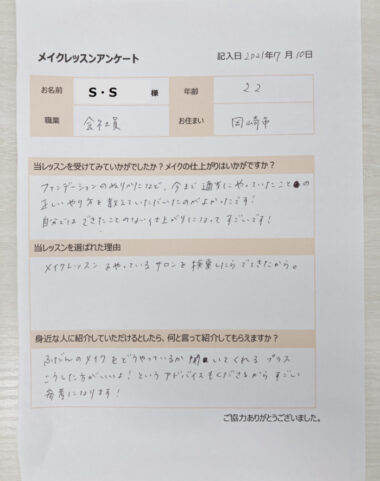 メイクレッスンアンケート
記入日 2021年7月10日
お名前 S・S 様 年齢 22
職業 会社員 お住まい 岡崎市
当レッスンを受けてみていかがでしたか？メイクの仕上がりはいかがですか？
ファンデーションのぬりかたなど、今まで適当にやっていたことの
正しいやり方を教えていただいたのがよかったです！
自分ではできたことのない仕上がりになってすごいです！
当レッスンを選ばれた理由
メイクレッスンをやっているサロンを検索したらでてきたから。
身近な人に紹介していただけるとしたら、何と言って紹介してもらえますか？
ふだんのメイクをどうやっているか聞いてくれるプラス
こうした方がいいよ！というアドバイスもくださるからすごい
参考になります！
ご協力ありがとうございました。